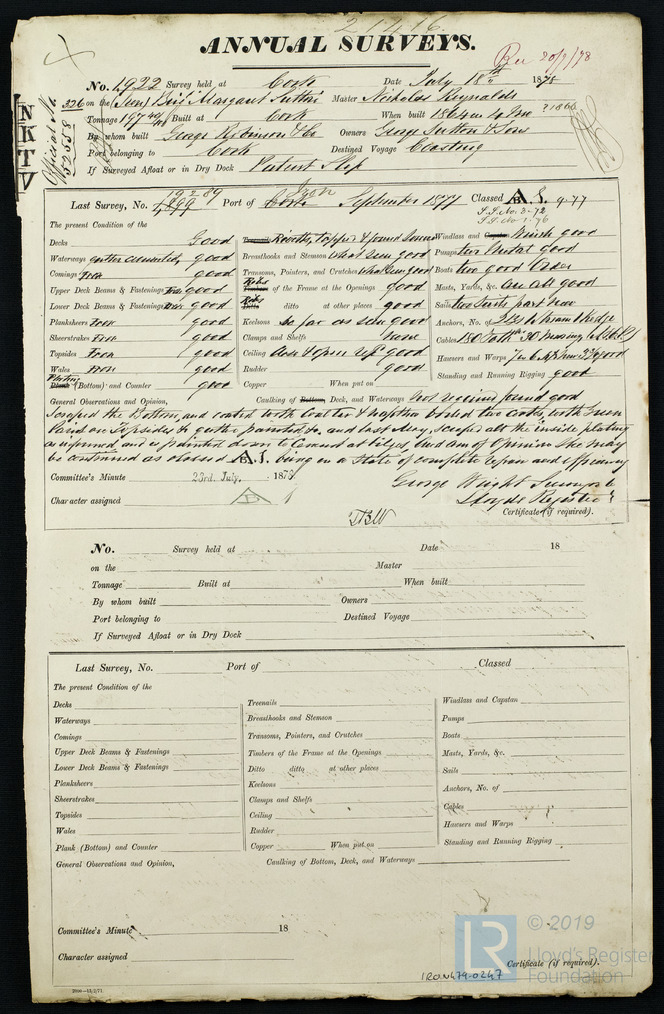 21416
ANNUAL SURVEYS.
Rec 20/7/78
No. 1922 Survey held at Cork Date July 18th 1878
326 on the (Iron) Brig Margaret Sutton Master Nicholas Reynolds
Tonnage 197 Built at Cork When built 1864
By whom built George Robinson & Co Owners George Sutton & Sons
Port belonging to Cork Destined Voyage Coasting
If Surveyed Afloat or in Dry Dock Patent Slip
NKTV
Official No. 52558
Iron
Last Survey, No. 1,899 Port of Cork September 1877 Classed A 1. 9.77
S.S. No. 3-72
S.S. No. 1-76
The present Condition of the
Decks Good
Waterways gutter cemented good
Comings Iron good
Upper Deck Beams & Fastenings Iron good
Lower Deck Beams & Fastenings Iron good
Planksheers Iron good
Sheerstrakes Iron good
Topsides Iron good
Wales Iron good
Plank (Bottom) and Counter good
Treenails Rivetts, tapped & found Sound
Breasthooks and Stemson what seen good
Transoms, Pointers, and Crutches what seen good
Timbers of the Frame at the Openings good
Ditto ditto at other places good
Keelsons so far as seen good
Clamps and Shelfs None
Ceiling close & open up good
Rudder good
Copper When put on
Windlass and Capstan Winch good
Pumps two Metal good
Boats two good Order
Masts, Yards, &c. are all good
Sails two Suits part new
Anchors, No. of
Cables
Hawsers and Warps good
Standing and Running Rigging good
General Observations and Opinion, Caulking of Bottom, Deck, and Waterways found good
Scraped the Bottom, and coated with Coaltar & Naptha boiled two coats, with Green
Paint on Topsides and last May, scraped all the inside plating
as informed and is painted down to Cement at bilges, and am of Opinion She may
be continued as classed A 1. being in a State of complete repair and efficiency
Committee's Minute 23rd July, 1878
George Wright Surveyor to
Lloyds Register
Character assigned A 1
Certificate (if required).
No. Survey held at Date 18
on the Master
Tonnage Built at When built
By whom built Owners
Port belonging to Destined Voyage
If Surveyed Afloat or in Dry Dock
Last Survey, No. Port of Classed
The present Condition of the
Decks
Waterways
Comings
Upper Deck Beams & Fastenings
Lower Deck Beams & Fastenings
Planksheers
Sheerstrakes
Topsides
Wales
Plank (Bottom) and Counter
Treenails
Breasthooks and Stemson
Transoms, Pointers, and Crutches
Timbers of the Frame at the Openings
Ditto ditto at other places
Keelsons
Clamps and Shelfs
Ceiling
Rudder
Copper When put on
Windlass and Capstan
Pumps
Boats
Masts, Yards, &c.
Sails
Anchors, No. of
Cables
Hawsers and Warps
Standing and Running Rigging
General Observations and Opinion, Caulking of Bottom, Deck, and Waterways
Committee's Minute 18
Character assigned
Certificate (if required).
LR © 2019
Lloyd's Register
Foundation
IRON479-0247